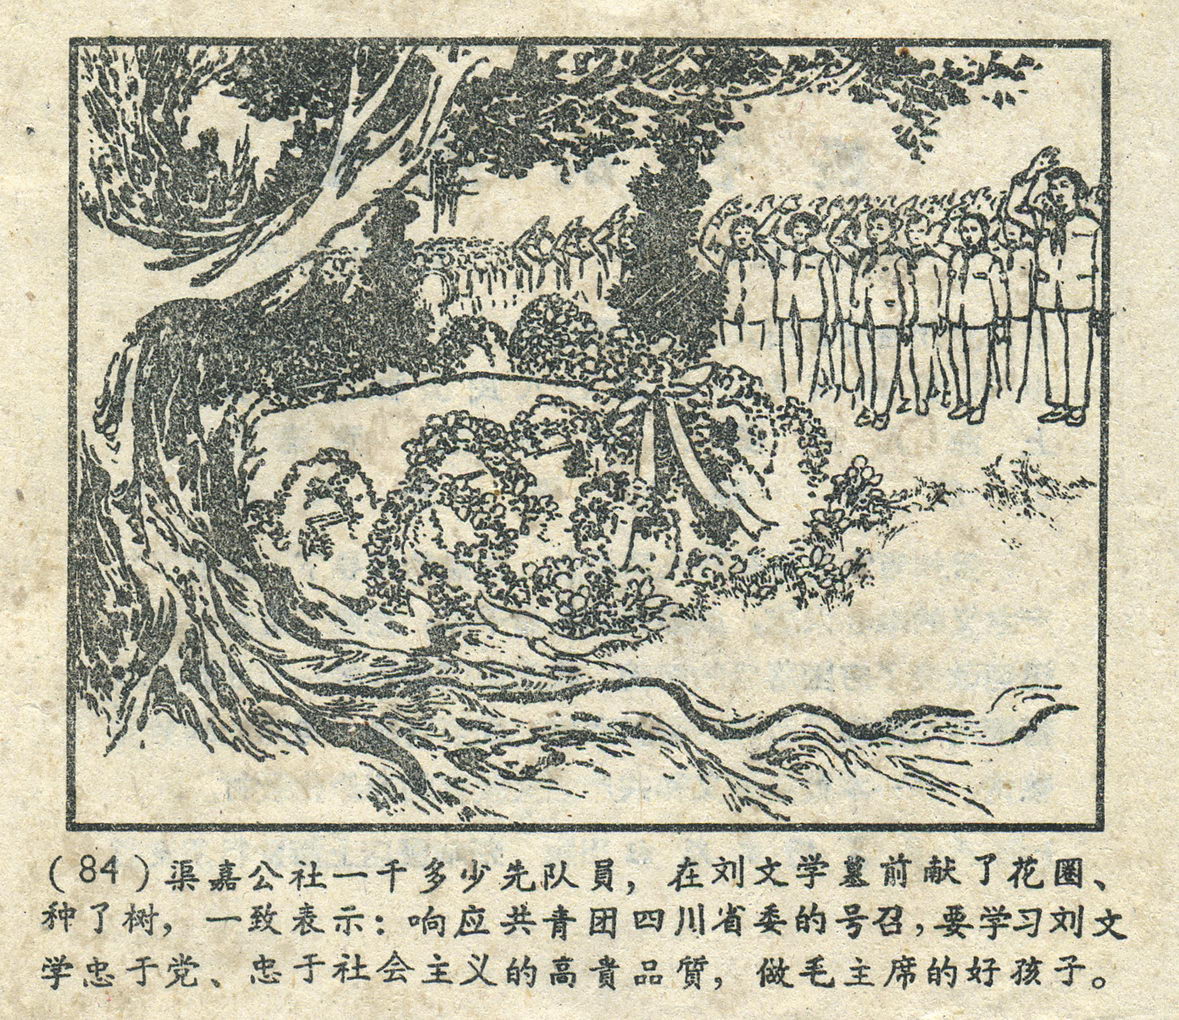 (84)渠嘉公社一千多少先队員，在刘文学墓前献了花圈、
种了树，一致表示：响应共青团四川省委的号召，要学习刘文
学忠于党、忠于社会主义的高貴品質，做毛主席的好孩子。